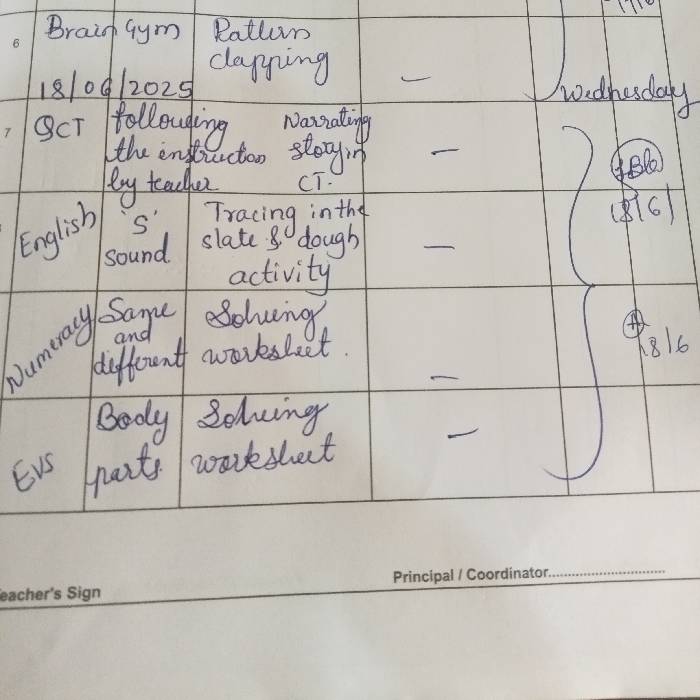 6 Brain Gym Pattern
clapping —
18/06/2025 Wednesday
7 QCT following Narrating
the instruction story in —
by teacher CT.
18/6/
English 's' Tracing in the
sound slate & dough —
activity
Numeracy Same Solving
and worksheet.
different —
18/6
EVS Body Solving
parts worksheet —
Principal / Coordinator..............................
eacher's Sign